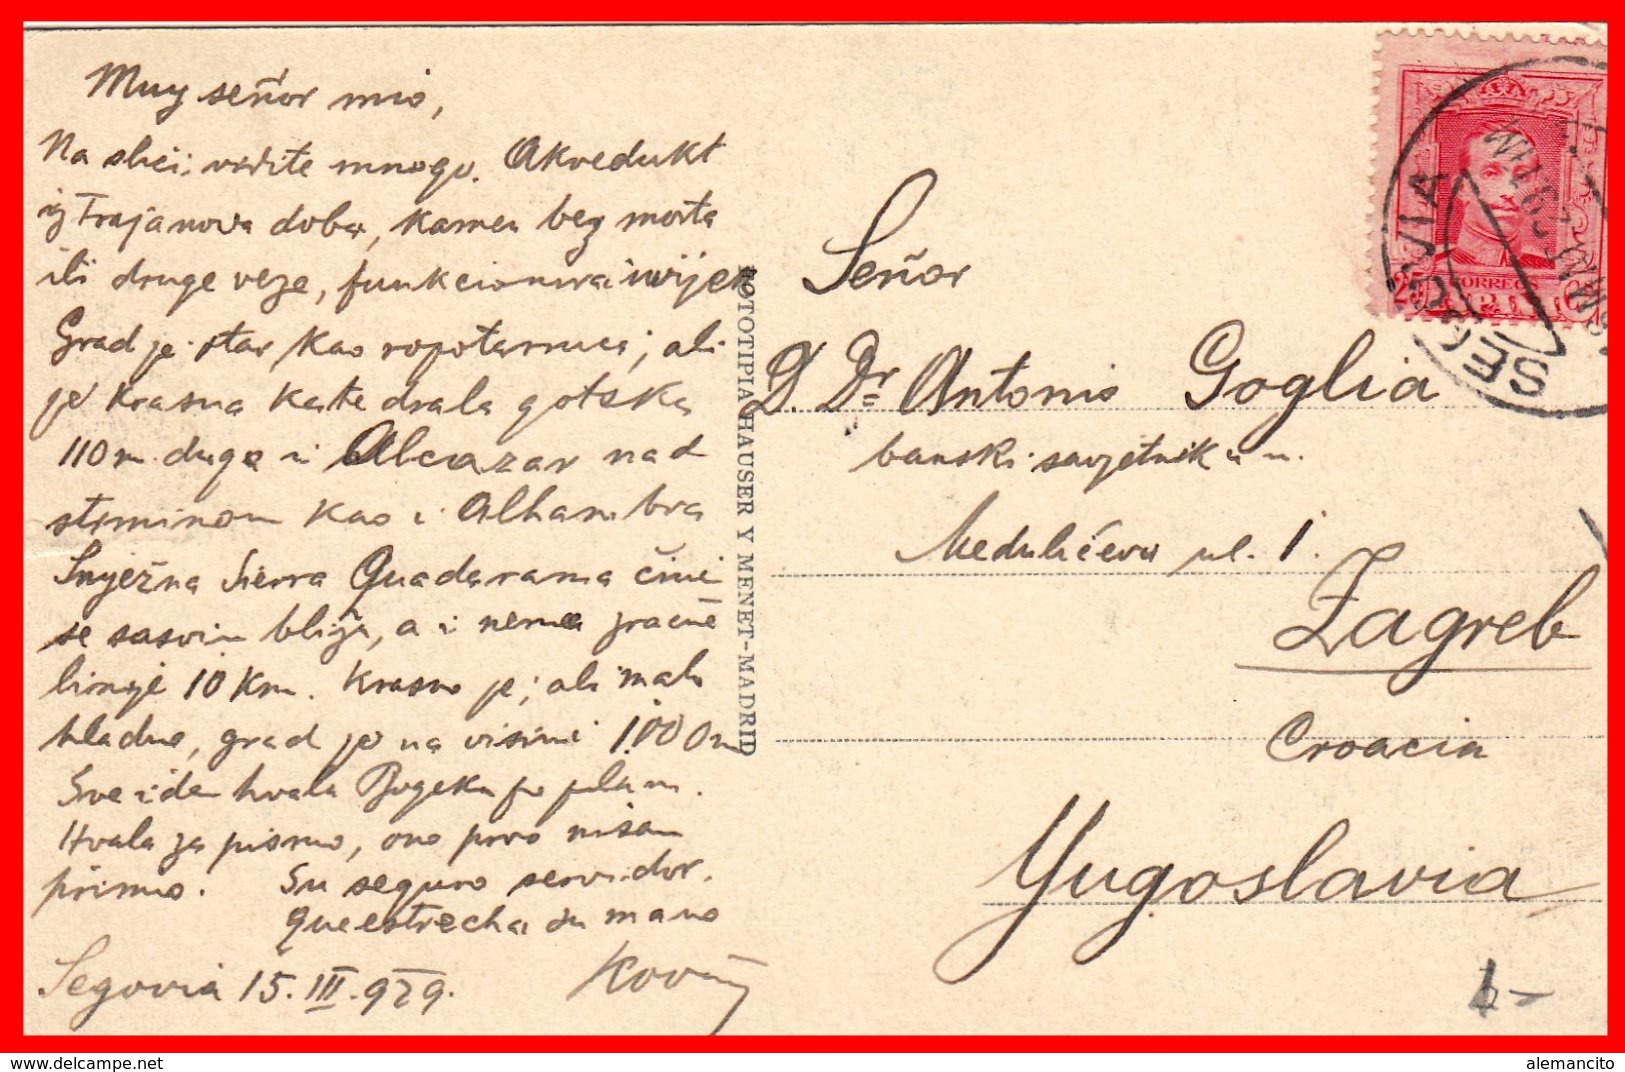 Muy señor mio,
Na slici vidite mnogo. Akvedukt
iz Trajanova doba, kamen bez morta
ili druge veze, funkcionira uvijek
Grad je star kao ali
je krasna katedrala gotska
110 m duga i Alcazar nad
strminom kao i Alhambra
Snježna Sierra Guadarama čini
se sasvim bliza, a i nema zračne
linije 10 Km. Krasno je, ali malo
hladno, grad je na visini 1000 m
Sve ide hvala Bogeku po planu.
Hvala za pismo, ono prvo nisam
primio. Su seguro servidor.
que estrecha su mano
Segovia 15. III. 929.
FOTOTIPIA HAUSER Y MENET-MADRID
Señor
D. Dr Antonio Goglia
banski savjetnik u m.
Medulićeva ul. 1.
Zagreb
Croacia
Yugoslavia
CORREOS
25
SEGOVIA
delcampe.net
alemancito